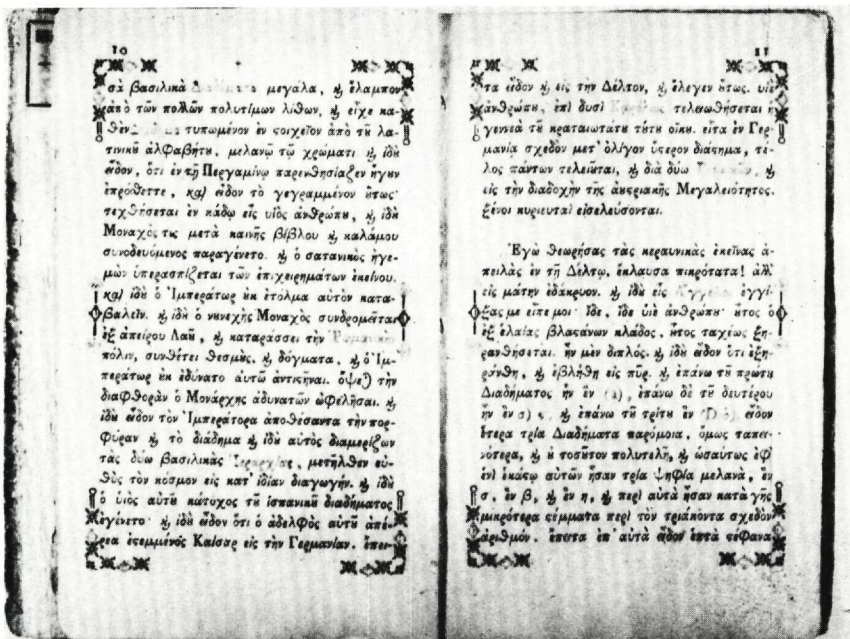 10
σὰ βασιλικὰ μεγάλα, ϗ ἔλαμπον
ἀπὸ τῶν πολλῶν πολυτίμων λίθων, ϗ εἶχε κα-
θὲν τυπωμένον ἐν ϛοιχεῖον ἀπὸ τȣ͂ λα-
τινικȣ͂ ἀλφαβήτȣ, μελανῷ τῷ χρώματι ϗ ἰδȣ̀
εἶδον, ὅτι ἐν τῇ Περγαμίνῳ παρενθησίαζεν ἤγȣν
ἐπρόθεττε, καὶ εἶδον τὸ γεγραμμένον ȣ̔́τως·
τεχθήσεται ἐν κάδῳ εἷς υἱὸς ἀνθρώπȣ, ϗ ἰδȣ̀
Μοναχός τις μετὰ καινῆς βίβλου ϗ καλάμου
συνοδευόμενος παραγένετο. ϗ ὁ σατανικὸς ἡγε-
μὼν ὑπερασπίζεται τῶν ἐπιχειρημάτων ἐκείνου.
καὶ ἰδȣ̀ ὁ Ἰμπεράτωρ ȣ̓κ ἐτόλμα αὐτὸν κατα-
βαλεῖν. ϗ ἰδȣ̀ ὁ νȣνεχὴς Μοναχὸς συνδρομᾶται
ἐξ ἀπείρου Λαȣ͂, ϗ καταράσσει τὴν
πόλιν, συνθέτει θεσμȣ̀ς, ϗ δόγματα, ϗ ὁ Ἰμ-
περάτωρ ȣ̓κ ἐδύνατο αὐτῷ ἀντιϛῆναι. ὄψεται τὴν
διαφθορὰν ὁ Μονάρχης ἀδυνατῶν ὠφελῆσαι. ϗ
ἰδȣ̀ εἶδον τὸν Ἰμπεράτορα ἀποθέσαντα τὴν πορ-
φύραν ϗ τὸ διάδημα ϗ ἰδȣ̀ αὐτὸς διαμερίζων
τὰς δύω βασιλικὰς μετῆλθεν εὐ-
θὺς τὸν κόσμον εἰς κατ᾽ ἰδίαν διαγωγήν. ϗ ἰδȣ̀
ὁ υἱὸς αὐτȣ͂ κάτοχος τȣ͂ ἱσπανικȣ͂ διαδήματος
ἐγένετο· ϗ ἰδȣ̀ εἶδον ὅτι ὁ ἀδελφὸς αὐτȣ͂ ἀπέ-
ρεα ἐϛεμμένος Καίσαρ εἰς τὴν Γερμανίαν. ἔπει-
11
τα εἶδον ϗ εἰς τὴν Δέλτον, ϗ ἔλεγεν ȣ̔́τως. υἱὲ
ἀνθρώπȣ, ἐπὶ δυσὶ τελειωθήσεται ἡ
γεννεὰ τȣ͂ κραταιωτάτȣ τȣ́τȣ οἴκȣ. εἶτα ἐν Γερ-
μανίᾳ σχεδὸν μετ᾽ ὀλίγον ὕϛερον διάϛημα, τέ-
λος πάντων τελειῶται, ϗ διὰ δύω ϗ
εἰς τὴν διαδοχὴν τῆς αὐϛριακῆς Μεγαλειότητος.
ξένοι κυριευταὶ εἰσελεύσονται.
Ἐγὼ θεωρήσας τὰς κεραυνικὰς ἐκείνας ἀ-
πειλὰς ἐν τῇ Δέλτῳ, ἔκλαυσα πικρότατα! ἀλλ᾽
εἰς μάτην ἐδάκρυον. ϗ ἰδȣ̀ εἷς ἐγγί-
ξας με εἶπε μοι· Ἴδε, ἴδε υἱὲ ἀνθρώπȣ· ȣ̔͂τος ὁ
ἐξ ἐλαίας βλαϛάνων κλάδος, ȣ̔͂τος ταχέως ξη-
ρανθήσεται. ἦν μὲν διπλός. ϗ ἰδȣ̀ εἶδον ὅτι ἐξη-
ράνθη, ϗ ἐβλήθη εἰς πῦρ. ϗ ἐπάνω τȣ͂ πρώτȣ
Διαδήματος ἦν ἓν ἐπάνω δὲ τȣ͂ δευτέρου
ἦν ἓν ϗ ἐπάνω τȣ͂ τρίτȣ ἓν εἶδον
ἕτερα τρία Διαδήματα παρόμοια, ὅμως ταπει-
νότερα, ϗ ȣ̓ τοσȣ͂τον πολυτελῆ, ϗ ὡσαύτως ἐφ᾽
ἑνὶ ἑκάϛῳ αὐτῶν ἦσαν τρία ψηφία μελανὰ, ἓν
σ, ἓν β, ϗ ἓν η, ϗ περὶ αὐτὰ ἦσαν κατὰ γῆς
μικρότερα ϛέμματα περὶ τὸν τριάκοντα σχεδὸν
ἀριθμόν. ἔπειτα ἐπ᾽ αὐτὰ εἶδον ἑπτὰ ϛέφανα